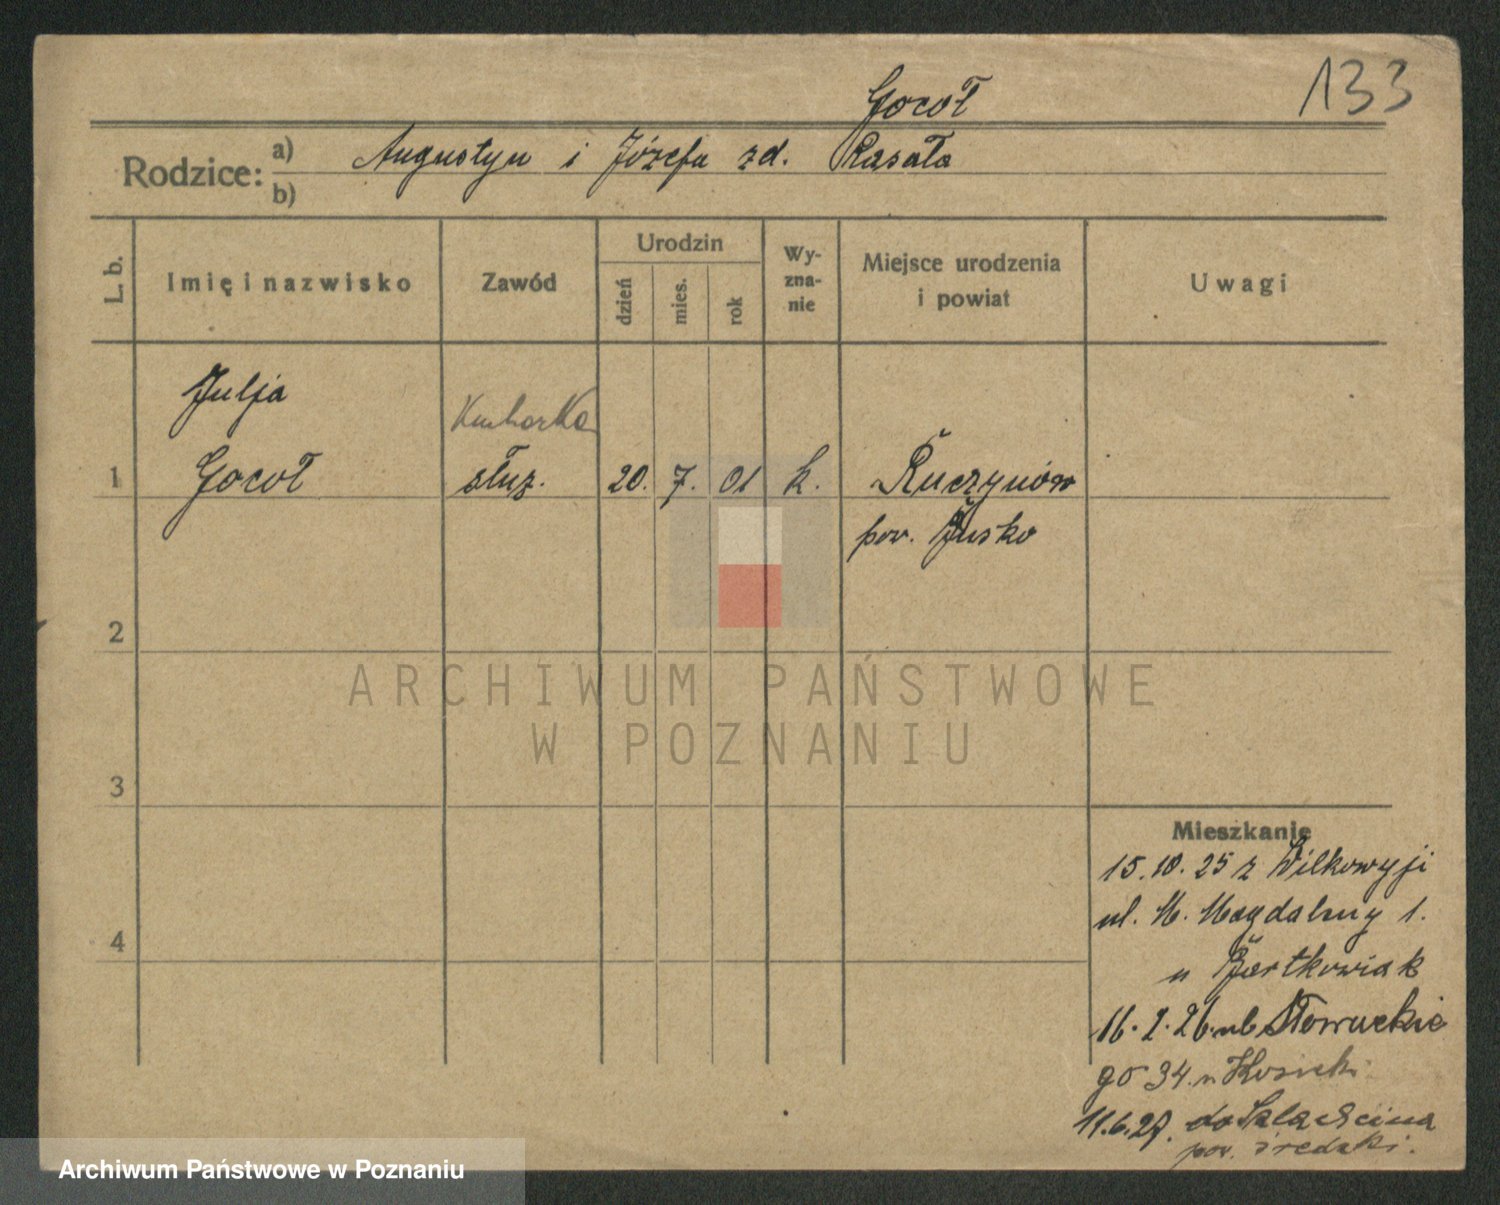 133
Gocoł
Rodzice: a) Augustyn i Józefa zd. Rasała
b)
L. b.
Imię i nazwisko
Zawód
Urodzin
dzień
mies.
rok
Wy-
zna-
nie
Miejsce urodzenia
i powiat
Uwagi
Julja
Kucharka
1 Gocoł służ. 20. 7. 01 k. Ruczynów
pow. Busko
2
3
4
ARCHIWUM PAŃSTWOWE
W POZNANIU
Mieszkanie
15.10.25 z Wilkowyji
ul. M. Magdaleny 1.
u Bartkowiak
16.2.26 ul. Słowackie
go 34. u Kosicki
11.6.27. do
pow. średzki.
Archiwum Państwowe w Poznaniu